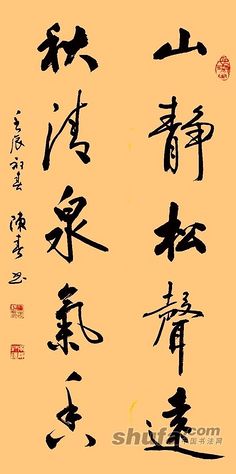 山静松聲遠
秋清泉氣香
壬辰初春 陳春思書
shufa.com
中国书法网